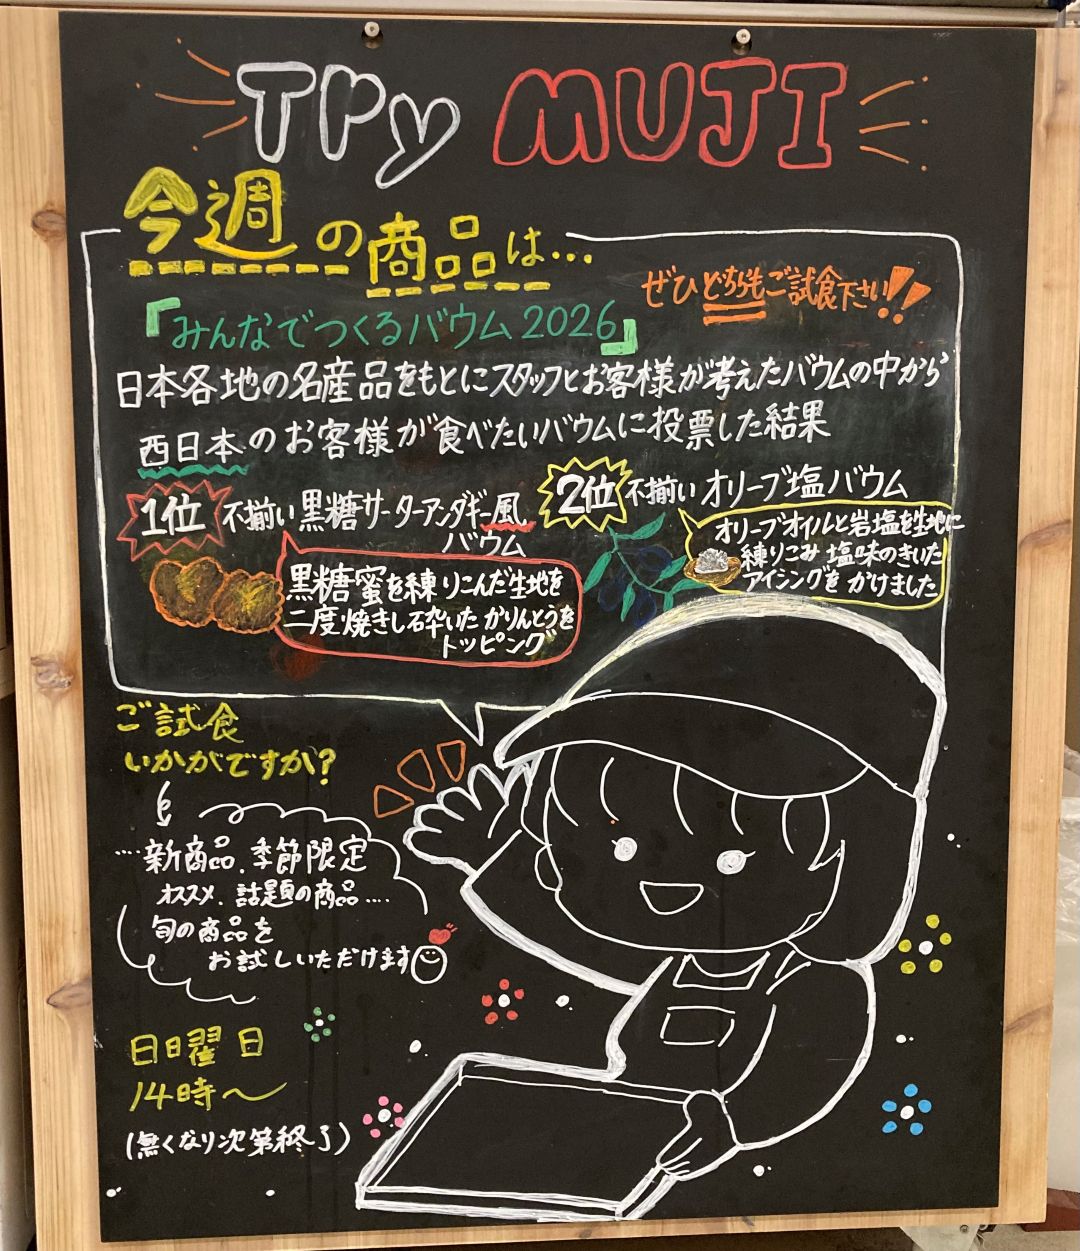 Try MUJI
今週の商品は…
ぜひどちらもご試食下さい!!
『みんなでつくるバウム2026』
日本各地の名産品をもとにスタッフとお客様が考えたバウムの中から
西日本のお客様が食べたいバウムに投票した結果
1位 不揃い黒糖サーターアンダギー風
バウム
黒糖蜜を練りこんだ生地を
二度焼きし砕いたかりんとうを
トッピング
2位 不揃いオリーブ塩バウム
オリーブオイルと岩塩を生地に
練りこみ 塩味のきいた
アイシングを かけました
ご試食
いかがですか?
…新商品.季節限定
オススメ.話題の商品…
旬の商品を
お試しいただけます
日曜日
14時〜
(無くなり次第終了)